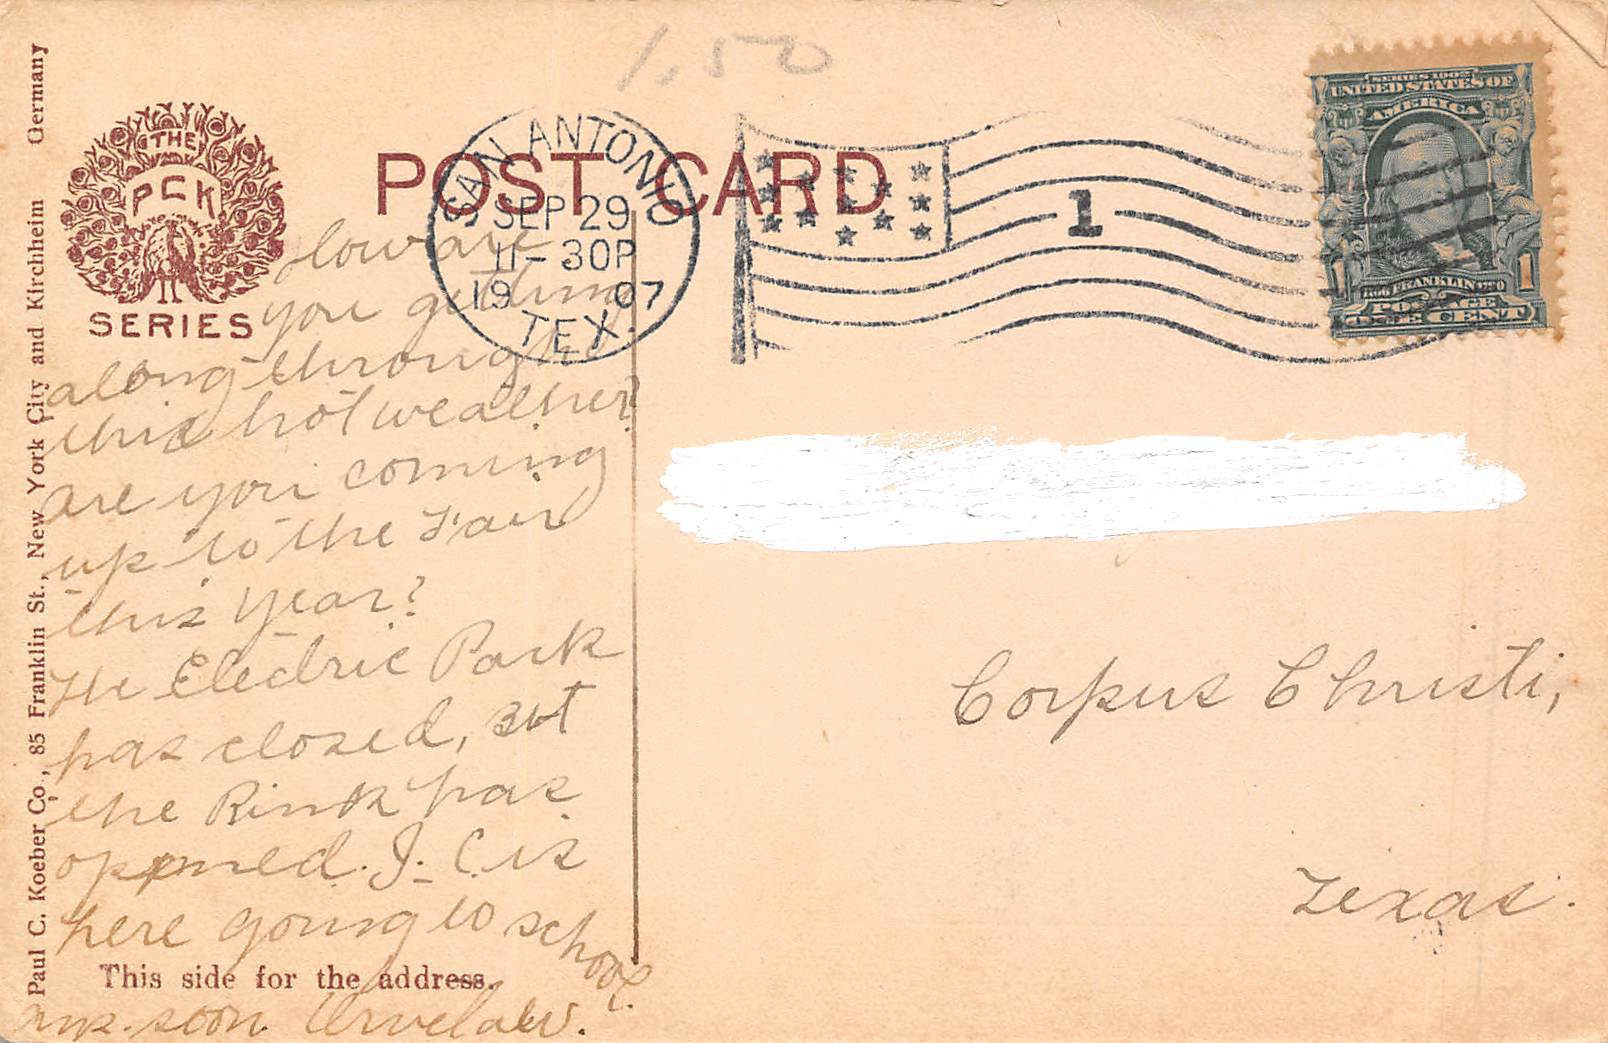 1.50
THE
PCK
SERIES
POST CARD
SAN ANTONIO
SEP 29
11-30P
1907
TEX.
1
SERIES 1902
UNITED STATES OF
AMERICA
1706 FRANKLIN 1790
1 1
POSTAGE
ONE CENT
Paul C. Koeber Co., 85 Franklin St., New York City and Kirchheim Germany
How are
you getting
along through
this hot weather?
are you coming
up to the Fair
this year?
The Electric Park
has closed, but
the Rink has
opened. J. C. is
here going to school.
This side for the address.
ans. soon.
Corpus Christi,
Texas.